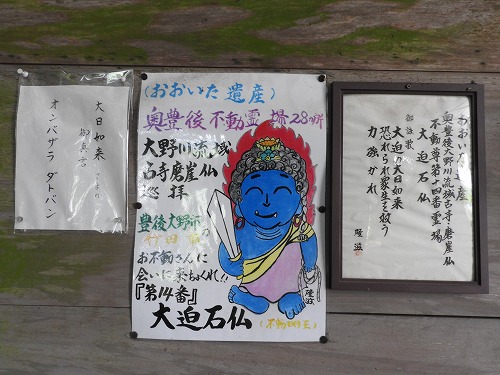 大日如来
御真言
オンバザラ ダトバン
(おおいた遺産)
奥豊後不動霊場28ヶ所
大野川流域
古寺磨崖仏
巡拝
豊後大野市
竹田市の
お不動さんに
会いに来ちょくれ!!
『第14番』
大迫石仏
(不動明王)
隆誠
おおいた遺産
奥豊後大野川流域古寺磨崖仏
不動尊第十四番霊場
大迫石仏
御詠歌
大迫の大日如来
恐れられ衆生を救う
力強かれ